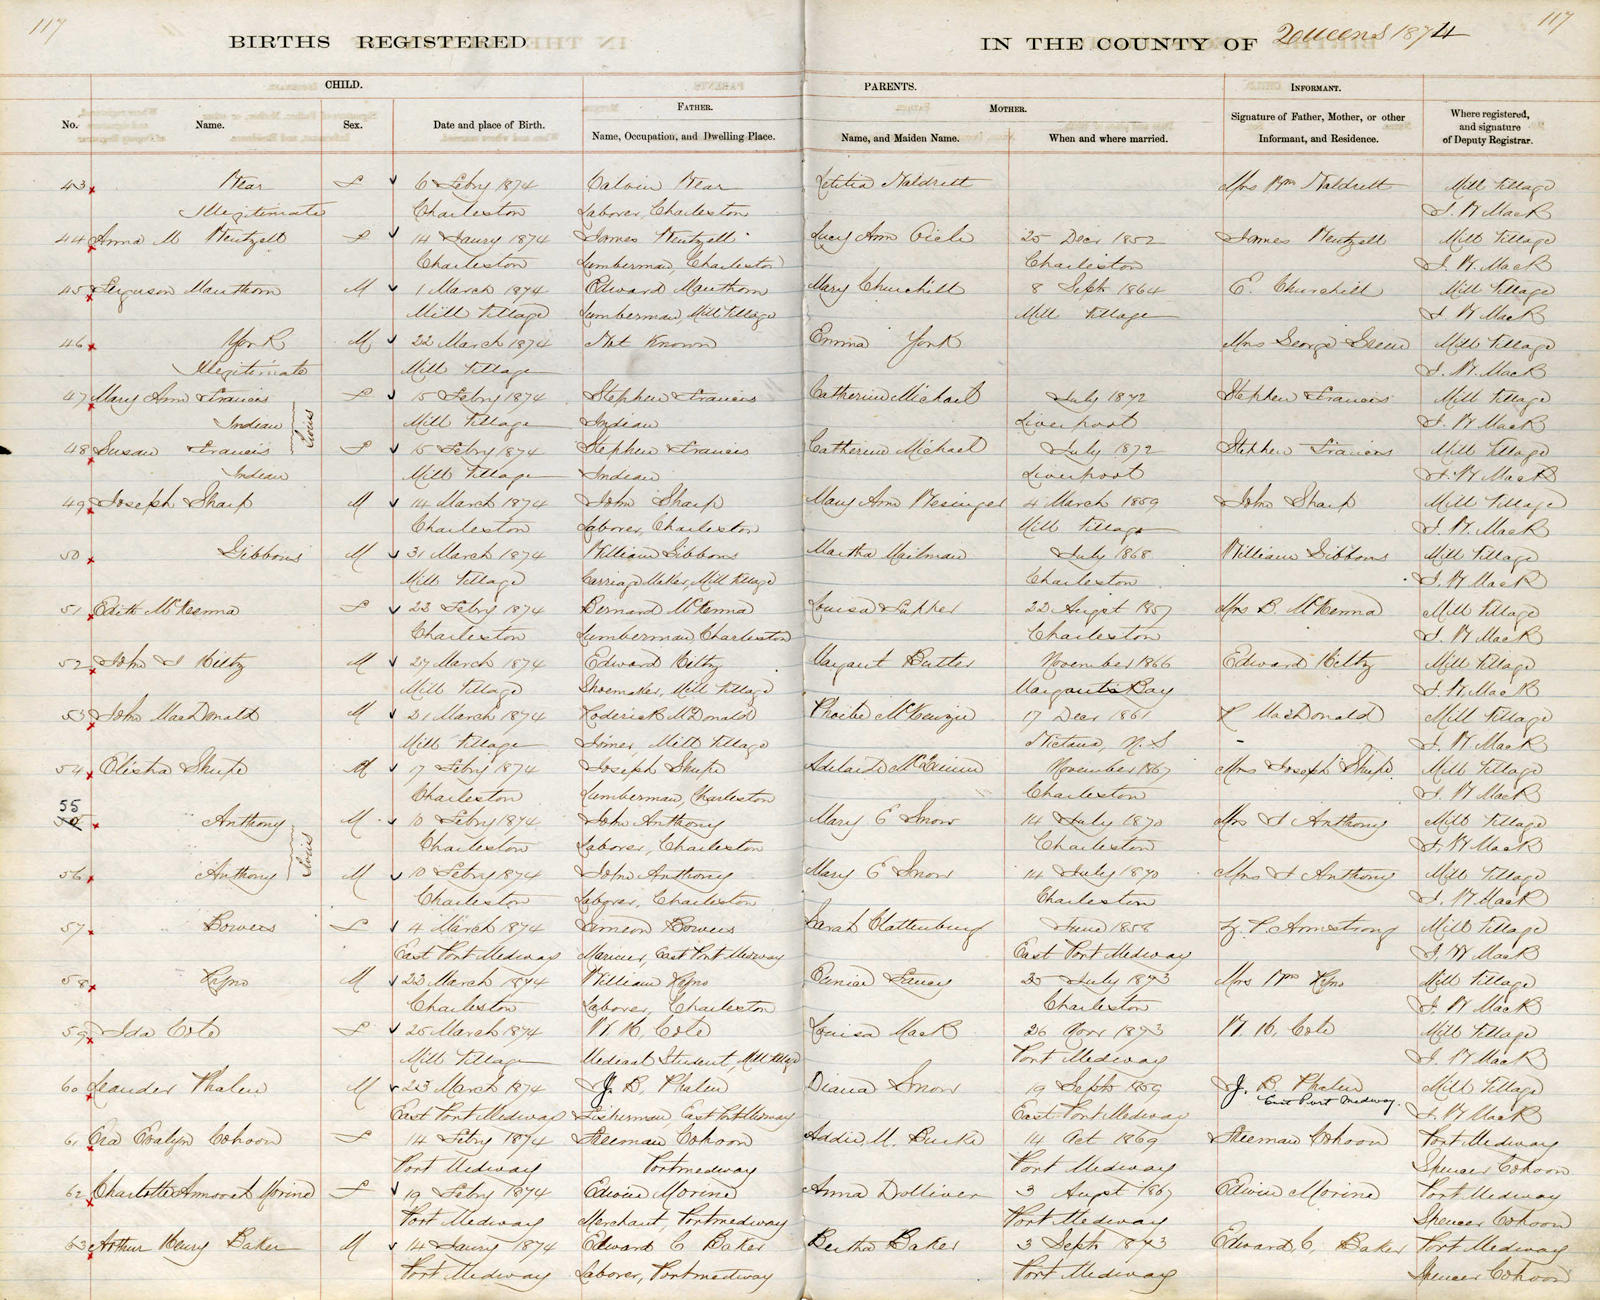 117
117
BIRTHS REGISTERED
IN THE COUNTY OF Queens 1874
CHILD.
PARENTS.
INFORMANT.
FATHER.
MOTHER.
No.
Name.
Sex.
Date and place of Birth.
Name, Occupation, and Dwelling Place.
Name, and Maiden Name.
When and where married.
Signature of Father, Mother, or other
Informant, and Residence.
Where registered,
and signature
of Deputy Registrar.
43 Wear F 6 Febry 1874 Calvin Wear Letitia Naldrett Mrs Wm Naldrett Mill Village
Illegitimate Charleston Laborer, Charleston J. W. Mack
44 Anna M Wentzell F 14 Janry 1874 James Wentzell Lucy Ann 25 Decr 1852 James Wentzell Mill Village
Charleston Lumberman, Charleston Charleston J. W. Mack
45 Ferguson Manthorn M 1 March 1874 Edward Manthorn Mary Churchill 8 Septr 1864 E. Churchill Mill Village
Mill Village Lumberman, Mill Village Mill Village J. W. Mack
46 York M 22 March 1874 Not Known Emma York Mrs George Mill Village
Illegitimate Mill Village J. W. Mack
47 Mary Ann Francis F 15 Febry 1874 Stephen Francis Catherine Michael July 1872 Stephen Francis Mill Village
Indian Mill Village Indian Liverpool J. W. Mack
48 Susan Francis F 15 Febry 1874 Stephen Francis Catherine Michael July 1872 Stephen Francis Mill Village
Indian Mill Village Indian Liverpool J. W. Mack
49 Joseph Sharp M 14 March 1874 John Sharp Mary Ann Wesinger 4 March 1859 John Sharp Mill Village
Charleston Laborer, Charleston Mill Village J. W. Mack
50 Gibbons M 31 March 1874 William Gibbons Martha Mailman July 1868 William Gibbons Mill Village
Mill Village Carriage Maker, Mill Village Charleston J. W. Mack
51 Edith McKenna F 23 Febry 1874 Bernard McKenna Louisa 22 Augst 1857 Mrs B. McKenna Mill Village
Charleston Lumberman Charleston Charleston J. W. Mack
52 John J Hiltz M 27 March 1874 Edward Hiltz Margaret Butler November 1866 Edward Hiltz Mill Village
Mill Village Shoemaker, Mill Village Margarets Bay J. W. Mack
53 John MacDonald M 21 March 1874 Roderick McDonald Phoebe McKenzie 17 Decr 1861 R MacDonald Mill Village
Mill Village Joiner, Mill Village Nictaux, N. S J. W. Mack
54 Elisha Skupe M 17 Febry 1874 Joseph Skupe Adelaide November 1867 Mrs Joseph Skupe Mill Village
Charleston Lumberman, Charleston Charleston J. W. Mack
55 Anthony M 10 Febry 1874 John Anthony Mary E Snow 14 July 1870 Mrs J Anthony Mill Village
Charleston Laborer, Charleston Charleston J. W. Mack
56 Anthony M 10 Febry 1874 John Anthony Mary E Snow 14 July 1870 Mrs J Anthony Mill Village
Charleston Laborer, Charleston Charleston J. W. Mack
57 Bowers F 4 March 1874 Simeon Bowers Sarah Clattenburg June 1858 Armstrong Mill Village
East Port Medway Mariner, East Port Medway East Port Medway J. W. Mack
58 M 22 March 1874 William 25 July 1873 Mrs Wm Mill Village
Charleston Laborer, Charleston Charleston J. W. Mack
59 Ida Cole F 25 March 1874 W. H. Cole Louisa Mack 26 Novr 1873 W. H. Cole Mill Village
Mill Village Medical Student, Mill Village Port Medway J. W. Mack
60 Leander Phalen M 23 March 1874 J. B. Phalen Diana Snow 19 Septr 1859 J. B Phalen Mill Village
East Port Medway Fisherman, East Port Medway East Port Medway East Port Medway. J. W. Mack
61 Eva Evalyn Cohoon F 14 Febry 1874 Freeman Cohoon Addie M. Burke 14 Oct 1869 Freeman Cohoon Port Medway
Port Medway Portmedway Port Medway Spencer Cohoon
62 Charlotte Morine F 19 Febry 1874 Edwin Morine Anna Dolliver 3 Augst 1867 Edwin Morine Port Medway
Port Medway Merchant, Portmedway Port Medway Spencer Cohoon
63 Arthur Henry Baker M 14 Janry 1874 Edward C Baker Bertha Baker 3 Septr 1873 Edward, C, Baker Port Medway
Port Medway Laborer, Portmedway Port Medway Spencer Cohoon